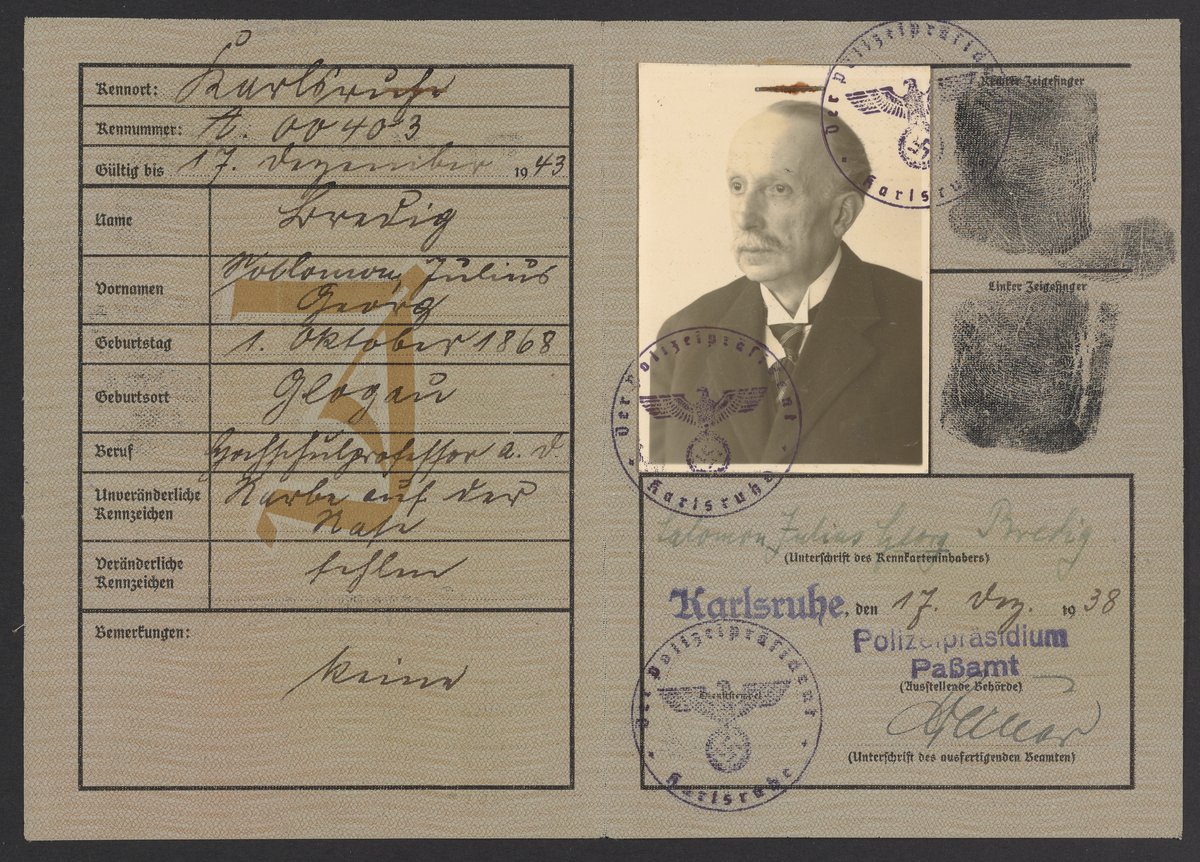 Kennort: Karlsruhe
Kennummer: A. 00403
Gültig bis 17. Dezember 1943
Name Bredig
Vornamen Salomon, Julius
Georg
Geburtstag 1. Oktober 1868
Geburtsort Glogau
Beruf Hochschulprofessor a. D.
Unveränderliche Kennzeichen Narbe auf der
Nase
Veränderliche Kennzeichen fehlen
Bemerkungen:
keine
J
Der Polizeipräsident
Karlsruhe
Rechter Zeigefinger
Linker Zeigefinger
Der Polizeipräsident
Karlsruhe
Salomon Julius Georg Bredig
(Unterschrift des Kennkarteninhabers)
Karlsruhe, den 17. Dez. 1938
Polizeipräsidium
Paßamt
(Ausstellende Behörde)
(Unterschrift des ausfertigenden Beamten)
Der Polizeipräsident
Dienststempel
Karlsruhe